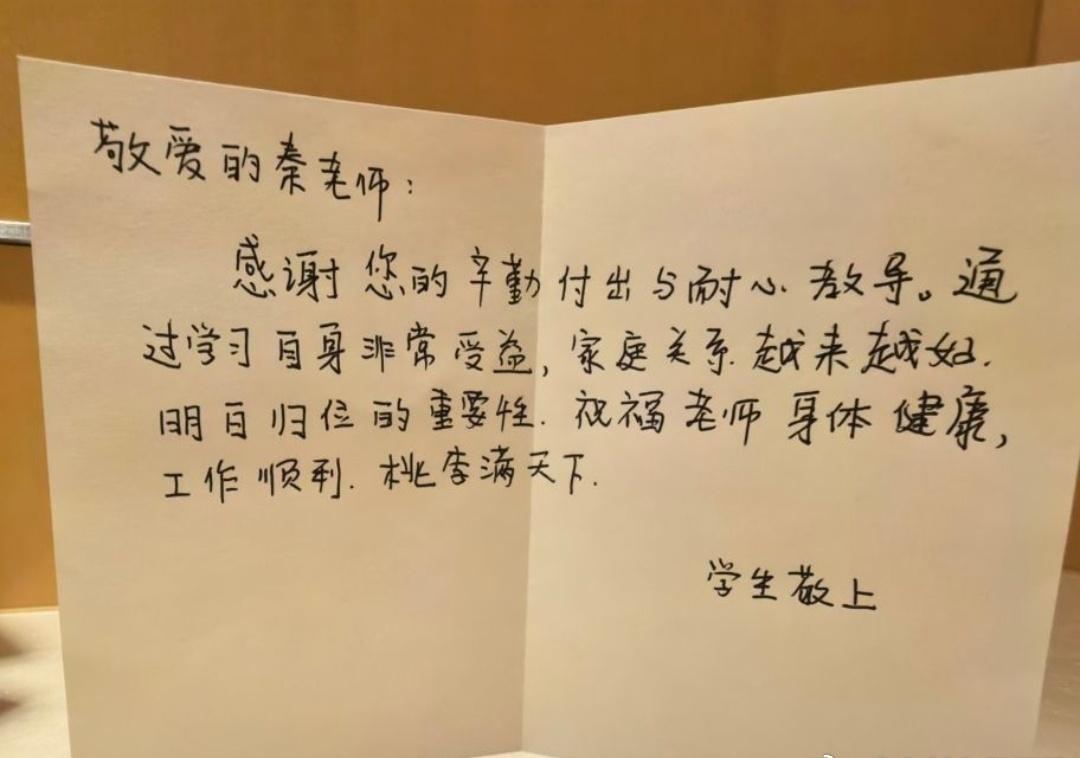 敬爱的秦老师：
感谢您的辛勤付出与耐心教导。通
过学习自身非常受益，家庭关系越来越好.
明白归位的重要性. 祝福老师身体健康，
工作顺利. 桃李满天下.
学生敬上